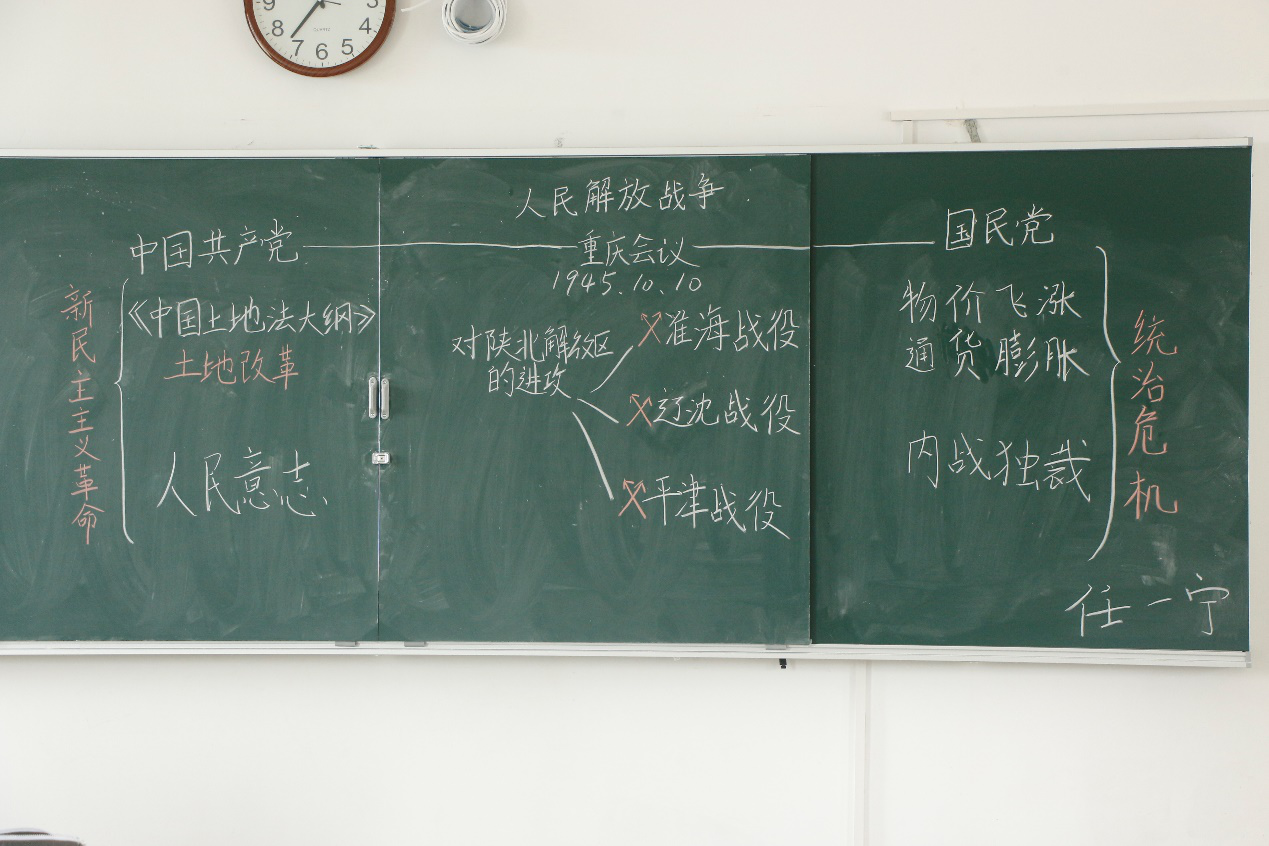 9 3
8 4
7 6 5
人民解放战争
中国共产党
重庆会议
国民党
1945.10.10
新民主主义革命
《中国土地法大纲》
土地改革
人民意志
对陕北解放区
的进攻
淮海战役
辽沈战役
平津战役
物价飞涨
通货膨胀
内战独裁
统治危机
任一宁